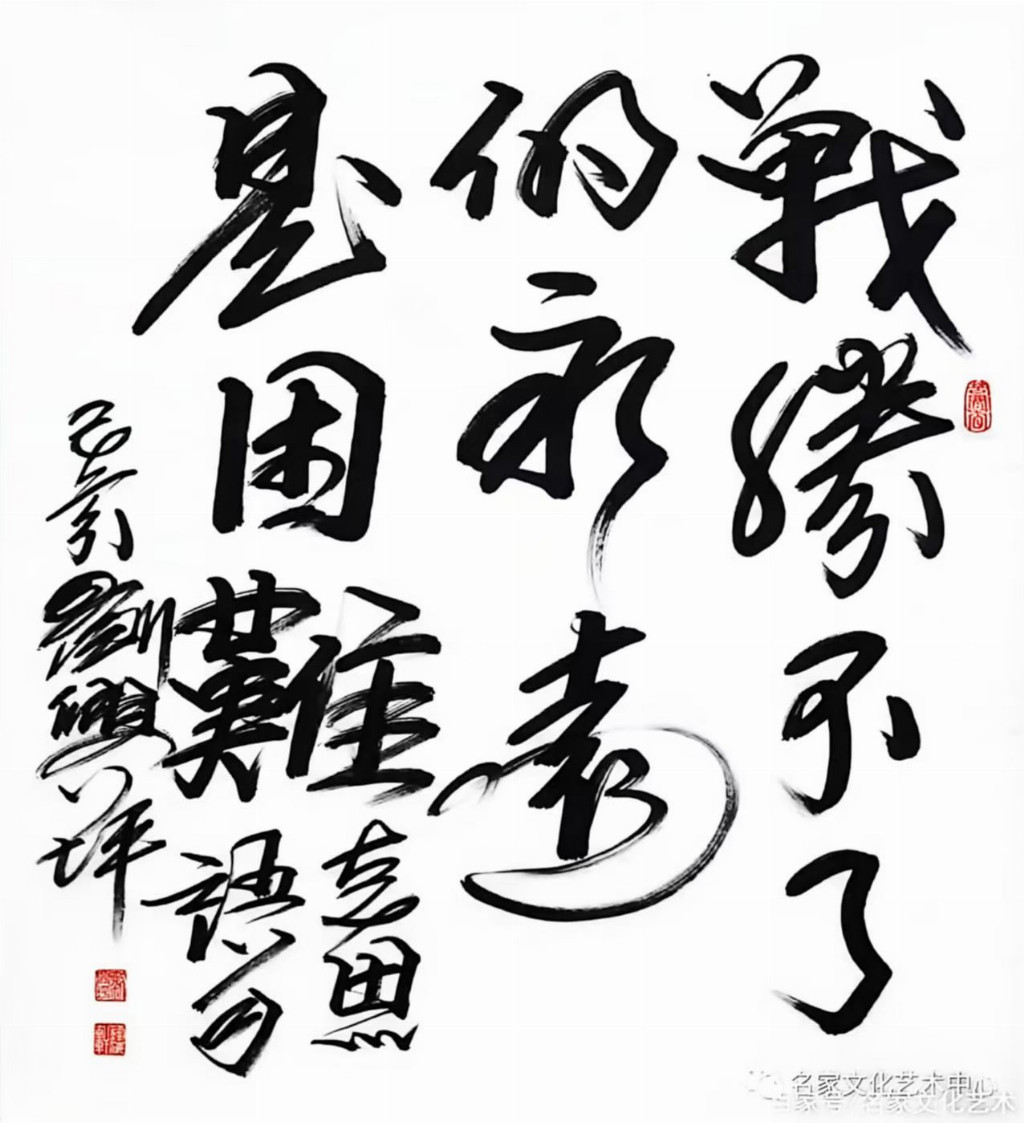 戰勝不了
的永遠
是困難
己亥劉興坪
名家文化艺术中心
百家号/名家文化艺术